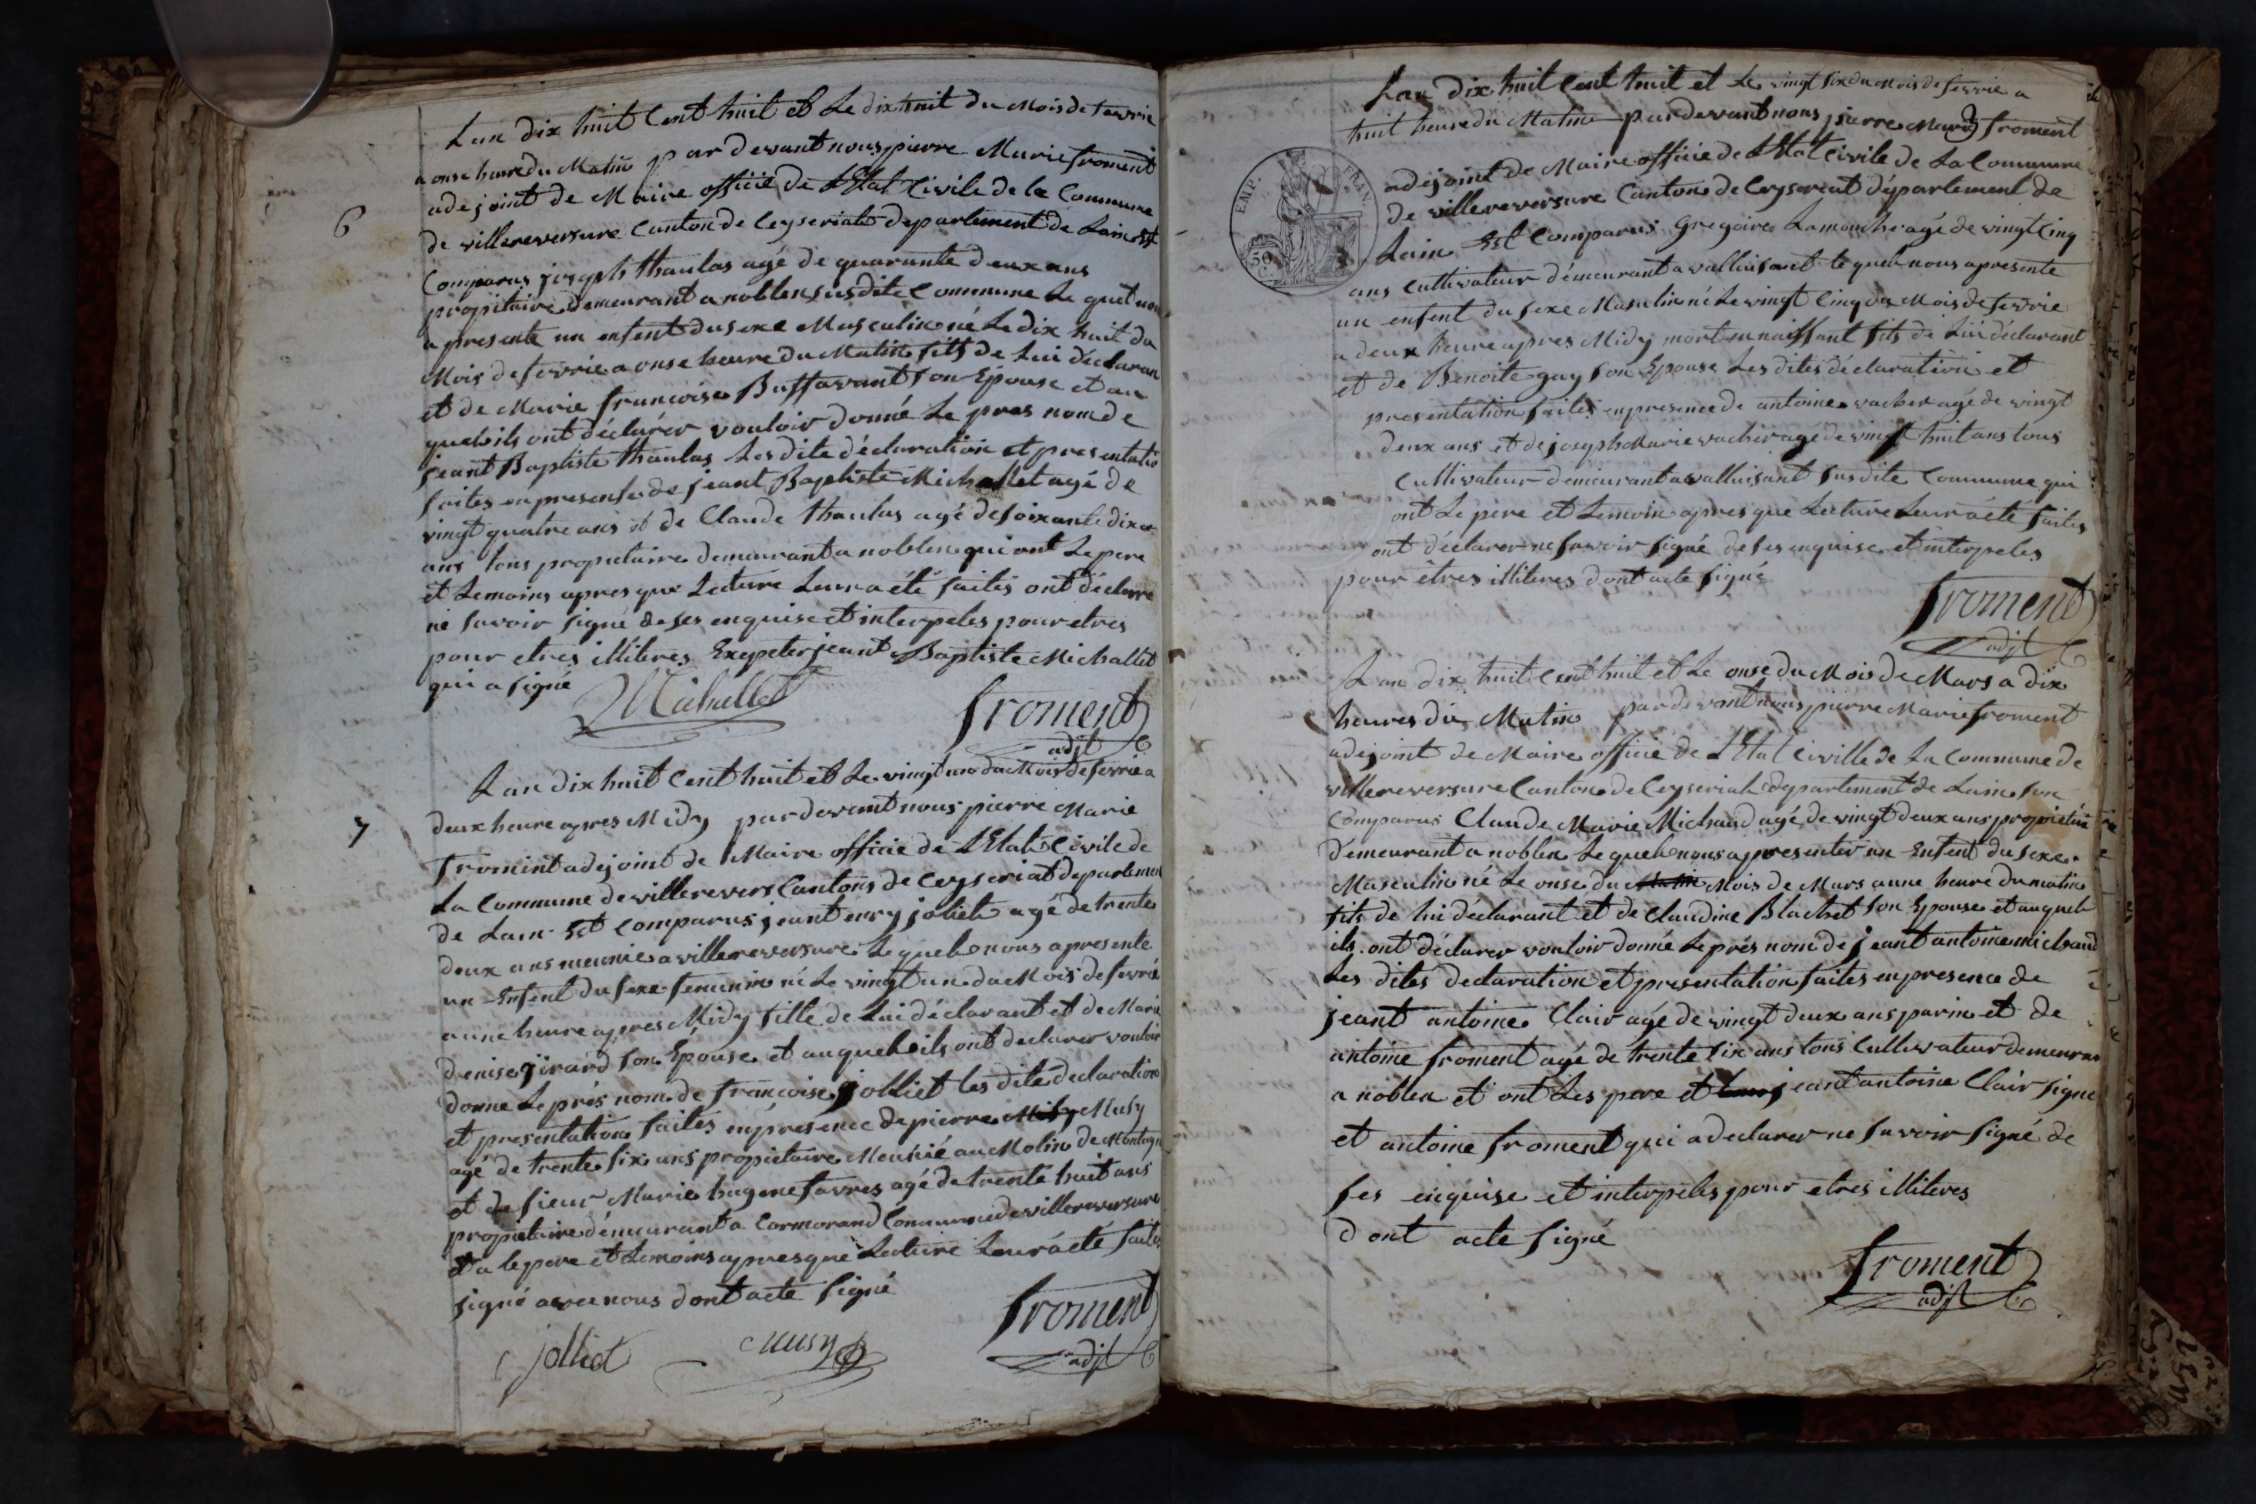 Lan dix huit Cent huit et Le dix huit du Mois de fevrie
a onse heure du Matin par devant nous pierre Marie froment
adejoint de Maire officie de LEtat Civile de la Commune
6
de villereversure Canton de Ceyseriat departement de Lain est
Comparus joseph thaulas agé de quarante deux ans
propitaire demeurant a noblen susdite Commune Le quel nou
a presente un enfent du sexe Masculin né Le dix huit du
Mois de fevrie a onse heure du Matin fils de Lui déclaran
et de Marie francoise Buffavant son Epouse et au
quel ils ont déclárer vouloir donné Le pres nom de
jeant Baptiste thaulas Les dite déclaration et presentatio
faites en presente de jeant Baptiste Michallet agé de
vingt quatre ans et de Claude thaulas agé de soixante dix
ans tous propietaire demeurant a noblen qui ont Le pere
et temoins apres que Lecture Leur a été faites ont déclarre
ne savoir signé de ses enquise et interpeles pour etres
pour etres illiteres Exepeter jeant Baptiste Michallet
qui a signé
Michallet
froment
adjt
Lan dix huit Cent huit et Le vingt un du Mois de fevrie a
7
deux heure apres Midy par devant nous pierre Marie
froment adejoint de Maire officie de LEtat Civile de
La Commune de villerevers Cantons de Ceyseriat departemen
de Lain Est Comparus jeant enry joliet agé de trente
deux ans meunie a villereversure Le quel nous a presente
un Enfent du sexe feminin né Le vingt un du Mois de fevrié
a une heure apres Midy fille de Lui déclarant et de Marie
denise girard son Epouse et au quel ils ont declarer vouloir
donne Le prés nom de francoise jolliet les dite declaration
et presentation faites en presence de pierre Musy
agé de trente six ans propietaire Meunié au Molin de Montagn
et de sieur Marie hugene favres agé de trente huit ans
propietaire démeurant a Cormorand Commune de villereversure
et a le pere et temoins apres que Lecture Leur a eté faites
signé avec nous dont acte signé
jolliet
Musy
froment
adjt
Lan dix huit Cent huit et Le vingt six du Mois de fevrie a
huit heure du Matin par devant nous pierre Marie froment
adejoint de Maire officie de LEtat Civile de La Commune
EMP. FRAN.
de villereversure Canton de Ceyseriat département de
50
Lain Est Comparus Gregoire Lamouche agé de vingt Cinq
ans Cultivateur démeurant a valluisant le quel nous a presente
un enfent du sexe Masculin né Le vingt Cinq du Mois de fevrie
a deux heure apres Midy mort en naissant fils de Lui déclarant
et de Benoite guy son Epouse Les dites déclaration et
presentation faites en presence de antoine vacher agé de vingt
deux ans et de joseph Marie vacher agé de vingt huit ans tous
Cultivateur demeurant a valluisant susdite Commune qui
ont Le pere et temoin apres que Lecture Leur a été faites
ont déclarer ne savoir signé de ses enquise et interpeles
pour êtres illiteres dont acte signé
froment
adjt
Lan dix huit Cent huit et Le onse du Mois de Mars a dix
heures du Matin par devant nous pierre Marie froment
adejoint de Maire officie de LEtat Civille de La Commune de
villereversure Canton de Ceyseriat departement de Lain son
Comparus Claude Marie Michaud agé de vingt deux ans proprietaire
demeurant a noblen Le quel nous a presenter un Enfent du sexe
Masculin né Le onse du Mois de Mars a une heure du matin
fils de lui déclarant et de Claudine Blachet son Epouse et au quel
ils ont déclarer vouloir donné Le prés nom de jeant antoine michaud
Les dites declaration et presentation faites en presence de
jeant antoine Clair agé de vingt deux ans parin et de
antoine froment agé de trente six ans tous Cultivateur demeuran
a noblen et ont Les pere et jeant antoine Clair signe
et antoine froment qui a declarer ne savoir signé de
ses enquise et interpeles pour etres illiteres
dont acte signé
froment
adjt